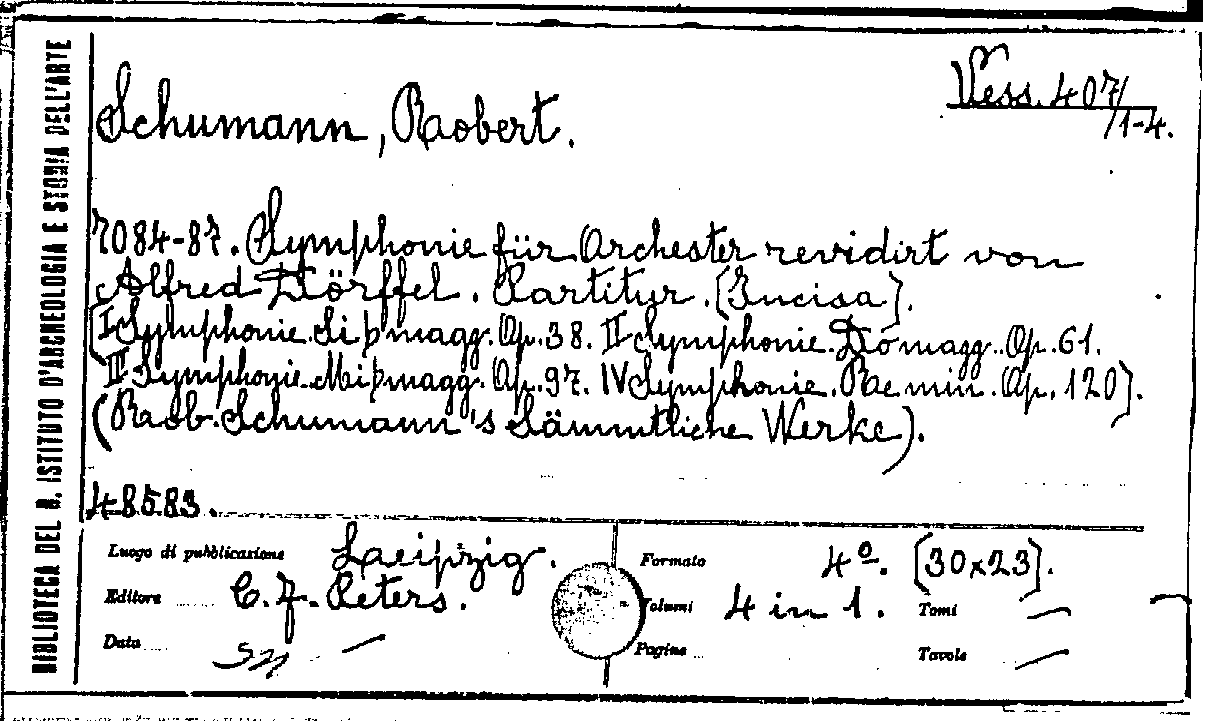 BIBLIOTECA DEL R. ISTITUTO D'ARCHEOLOGIA E STORIA DELL'ARTE
Vess. 407/
/1-4.
Schumann, Robert.
7084-87. Symphonie für Orchester revidirt von
Alfred Dörffel. Partitur. (Incisa).
[I Symphonie. Si♭ magg. Op. 38. II Symphonie. Do magg. Op. 61.
III Symphonie. Mi♭ magg. Op. 97. IV Symphonie. Re min. Op. 120].
(Rob. Schumann's Sämmtliche Werke).
48583.
Luogo di pubblicazione Leipzig. Formato 4º. [30x23].
Editore C. F. Peters. Volumi 4 in 1. Tomi —
Data — Pagine Tavole —